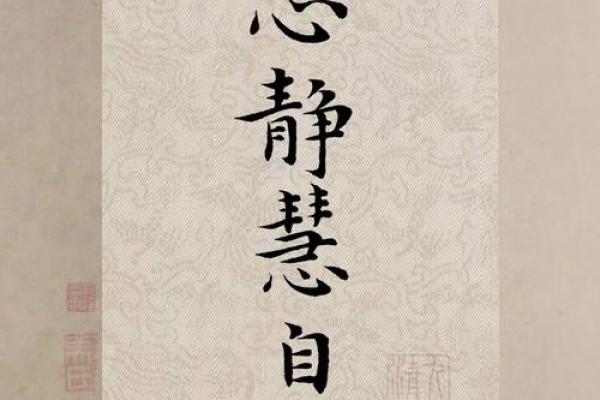 心静慧自